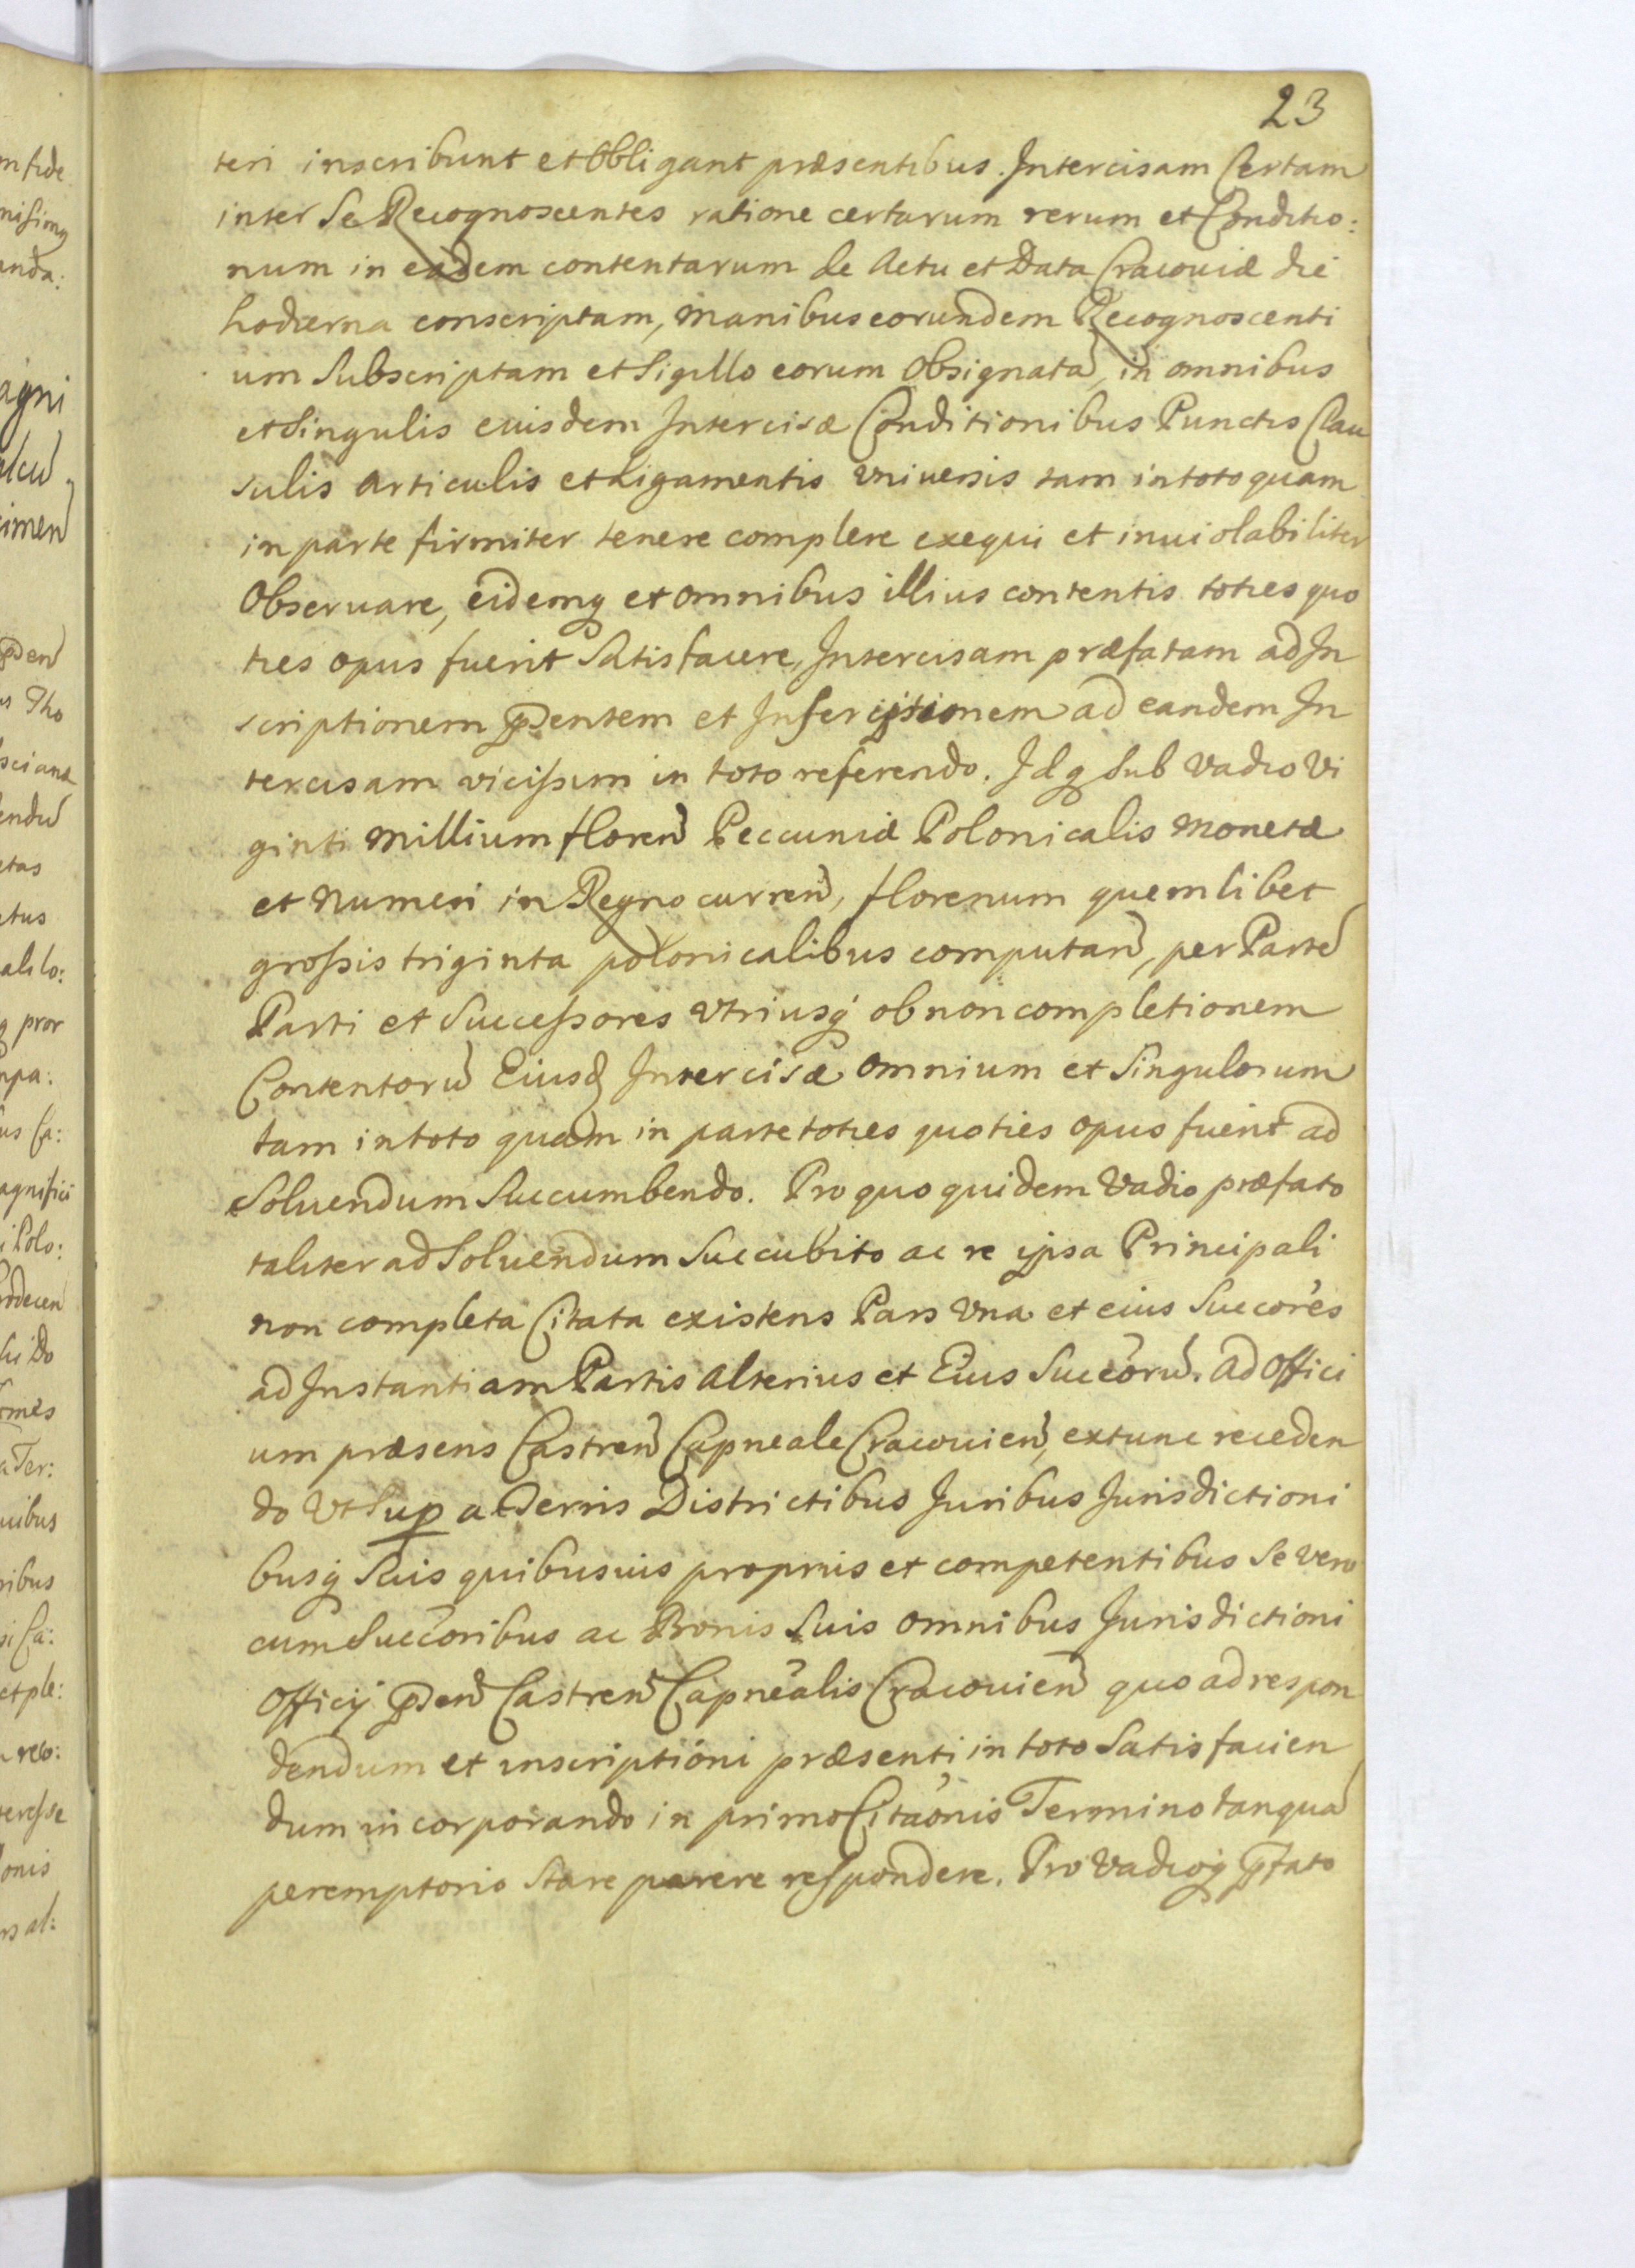 23
teri inscribunt et Obligant præsentibus. Intercisam Certam
inter Se Recognoscentes ratione certarum rerum et Conditio:
num in eadem contentarum de Actu et Data Cracouiæ die
hodierna conscriptam, manibus eorundem Recognoscenti
um Subscriptam et Sigillo eorum Obsignatã, in omnibus
et Singulis eiusdem Intercisæ Conditionibus Punctis Clau
sulis Articulis et Ligamentis Vniuersis tam in toto quam
in parte firmiter tenere complere exequi et inuiolabiliter
Obseruare, eidemq et omnibus illius contentis toties quo
ties opus fuerit Satisfacere, Intercisam præfatam ad In
scriptionem pdentem et Inscriptionem ad eandem In
tercisam vicißim in toto referendo. Idq Sub Vadio Vi
ginti Millium floreñ Peccuniæ Polonicalis Monetæ
et Numeri in Regno curreñ, florenum quemlibet
großis triginta polonicalibus computañ, per Parte͂
Parti et Succeßores Vtriusq ob non completionem
Contentorũ Eiusd Intercisæ omnium et Singulorum
tam in toto quam in parte toties quoties opus fuerit ad
Soluendum Succumbendo. Pro quo quidem Vadio præfato
taliter ad Soluendum Succubito ac re ipsa Principali
non completa Citata existens Pars Vna et eius Succores
ad Instantiam Partis Alterius et Eius Succorũ. Ad Offici
um præsens Castreñ Capneale Cracouieñ, extunc receden
do Vt Sup a Terris Districtibus Juribus Jurisdictioni
busq Suis quibusuis proprijs et competentibus Se vero
cum Succoribus ac Bonis Suis omnibus Jurisdictioni
Officij pdeñ Castreñ Capnealis Cracouieñ quo ad respon
dendum et inscriptioni præsenti in toto Satisfacien
dum incorporando in primo Citaonis Termino tanquã
peremptorio Stare parere respondere. Pro Vadioq pfato